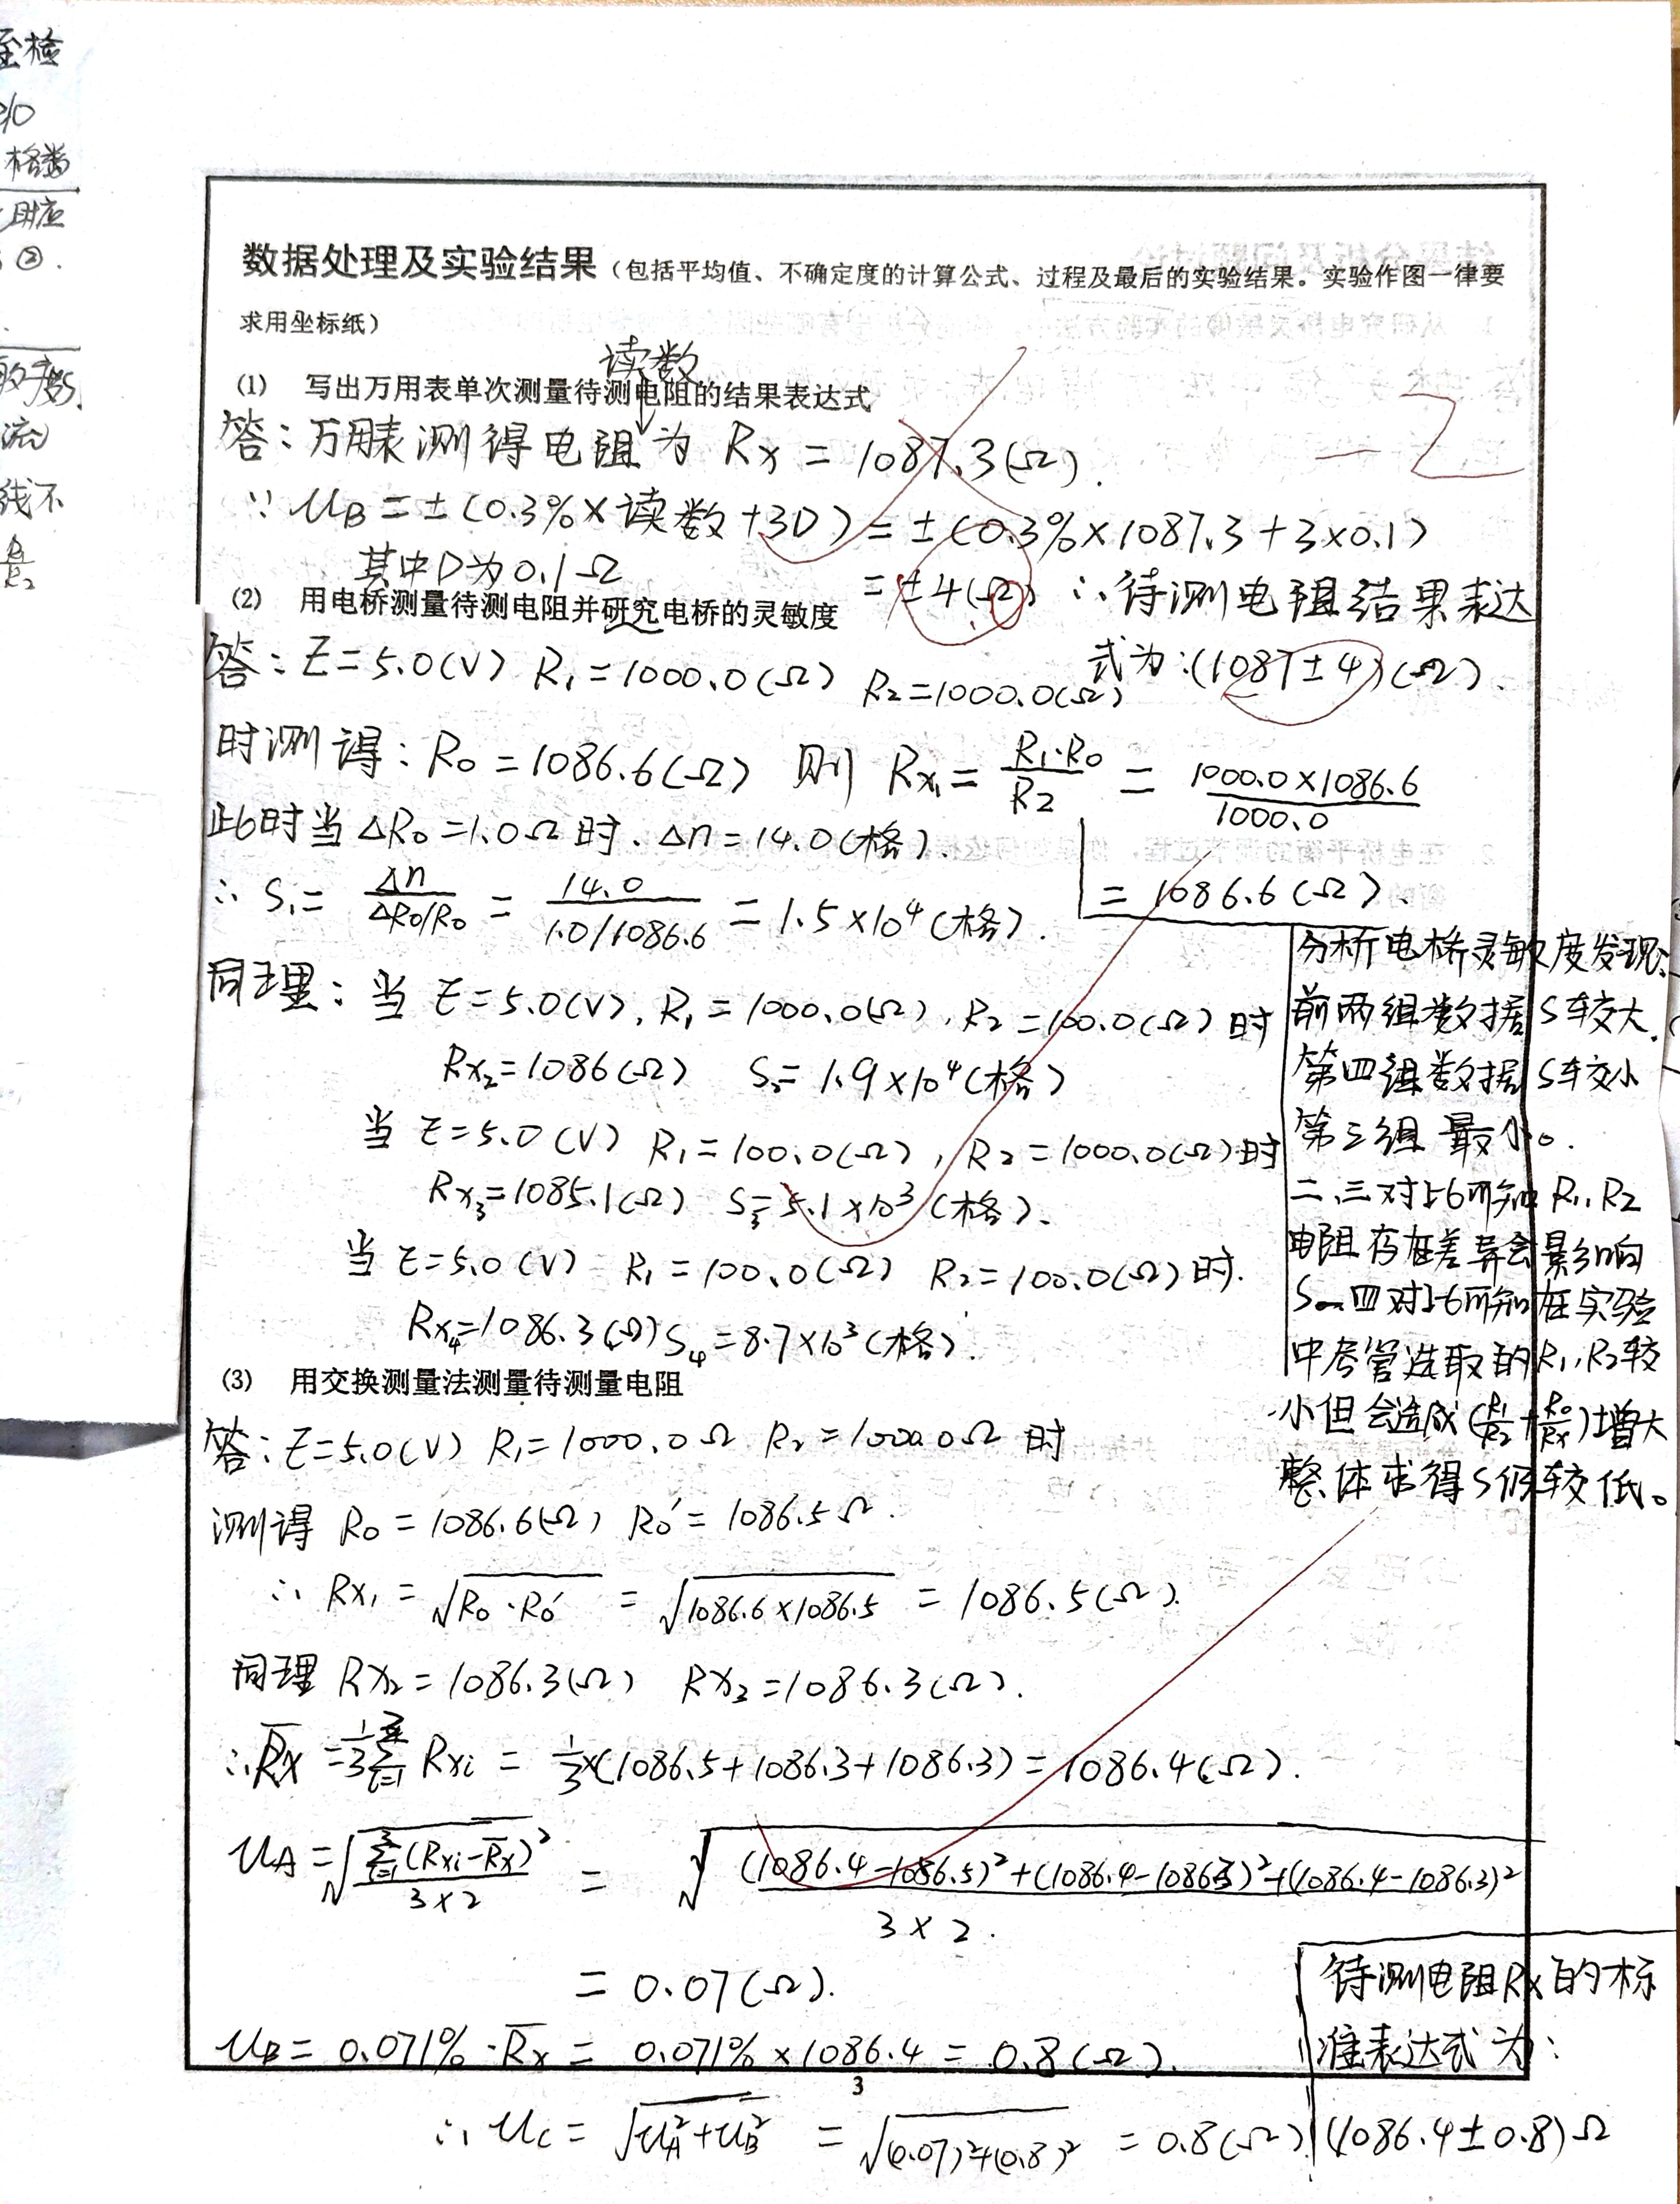 至检
格数
对应
②.
流
线不
R1
R2
数据处理及实验结果（包括平均值、不确定度的计算公式、过程及最后的实验结果。实验作图一律要
求用坐标纸）
读数
(1) 写出万用表单次测量待测电阻的结果表达式
答：万用表测得电阻为 Rx = 1087.3(Ω).
-2
∵ UB = ±(0.3%×读数+3D) = ±(0.3%×1087.3+3×0.1)
其中D为0.1Ω
= ±4(Ω) ∴待测电阻结果表达
式为:(1087±4)(Ω).
(2) 用电桥测量待测电阻并研究电桥的灵敏度
答：E=5.0(V) R₁=1000.0(Ω) R₂=1000.0(Ω)
时测得：R₀=1086.6(Ω) 则 Rx₁ = R₁·R₀/R₂ = 1000.0×1086.6/1000.0
= 1086.6(Ω).
此时当 ΔR₀=1.0Ω时. Δn=14.0(格).
∴ S₁ = Δn/(ΔR₀/R₀) = 14.0/(1.0/1086.6) = 1.5×10⁴(格).
同理：当 E=5.0(V), R₁=1000.0(Ω), R₂=100.0(Ω)时
Rx₂=1086(Ω) S₂=1.9×10⁴(格)
当 E=5.0(V) R₁=100.0(Ω), R₂=1000.0(Ω)时
Rx₃=1085.1(Ω) S₃=5.1×10³(格).
当 E=5.0(V) R₁=100.0(Ω) R₂=100.0(Ω)时.
Rx₄=1086.3(Ω) S₄=8.7×10³(格).
分析电桥灵敏度发现:
前两组数据S较大.
第四组数据S较小
第三组最小。
二、三对比可知R₁、R₂
电阻存在差异会影响
S一四对比可知在实验
中尽管选取的R₁、R₂较
小但会造成(R₁/R₂+R₀/Rx)增大
整体求得S仍较低。
(3) 用交换测量法测量待测量电阻
答：E=5.0(V) R₁=1000.0Ω R₂=1000.0Ω 时
测得 R₀=1086.6(Ω) R₀′=1086.5Ω.
∴ Rx₁ = √(R₀·R₀′) = √(1086.6×1086.5) = 1086.5(Ω).
同理 Rx₂=1086.3(Ω) Rx₃=1086.3(Ω).
∴ R̄x = 1/3 Σ(i=1→3) Rxi = 1/3×(1086.5+1086.3+1086.3) = 1086.4(Ω).
UA = √(Σ(i=1→3)(Rxi-R̄x)²/(3×2)) = √(((1086.4-1086.5)²+(1086.4-1086.3)²+(1086.4-1086.3)²)/(3×2))
= 0.07(Ω).
UB = 0.071%·R̄x = 0.071%×1086.4 = 0.8(Ω).
3
∴ Uc = √(UA²+UB²) = √((0.07)²+(0.8)²) = 0.8(Ω)
待测电阻Rx的标
准表达式为：
(1086.4±0.8)Ω